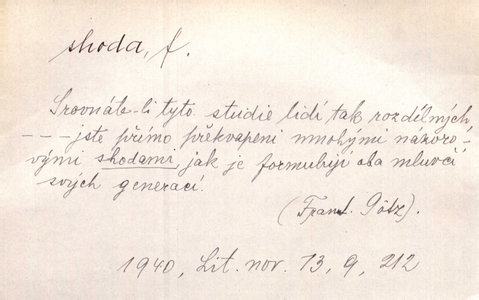 shoda, f.
Srovnáte-li tyto studie lidí tak rozdílných
---- jste přímo překvapeni mnohými názoro-
vými shodami, jak je formulují oba mluvčí
svých generací.
(Frant. Götz).
1940, Lit. nov. 13, 9, 212